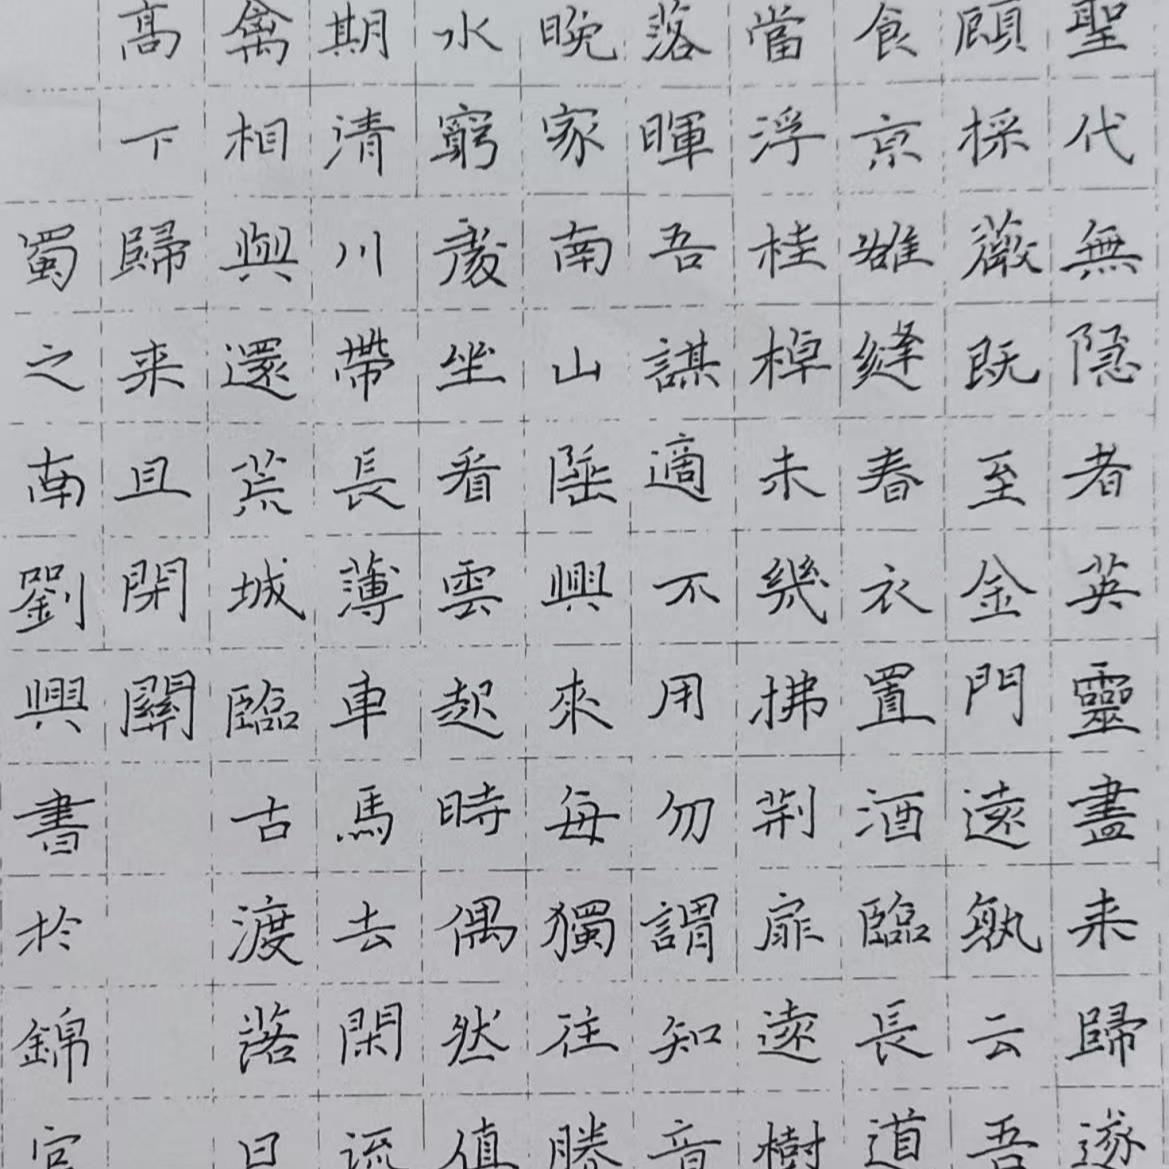 聖代無隱者英靈盡来歸遂
顧採薇既至金門遠孰云吾
食京雒縫春衣置酒臨長道
當浮桂棹未幾拂荆扉遠樹
落暉吾謀適不用勿謂知音
晚家南山陲興來每獨往勝
水窮處坐看雲起時偶然值
期清川帶長薄車馬去閑流
禽相與還荒城臨古渡落日
高下歸来且閉關
蜀之南劉興書於錦官